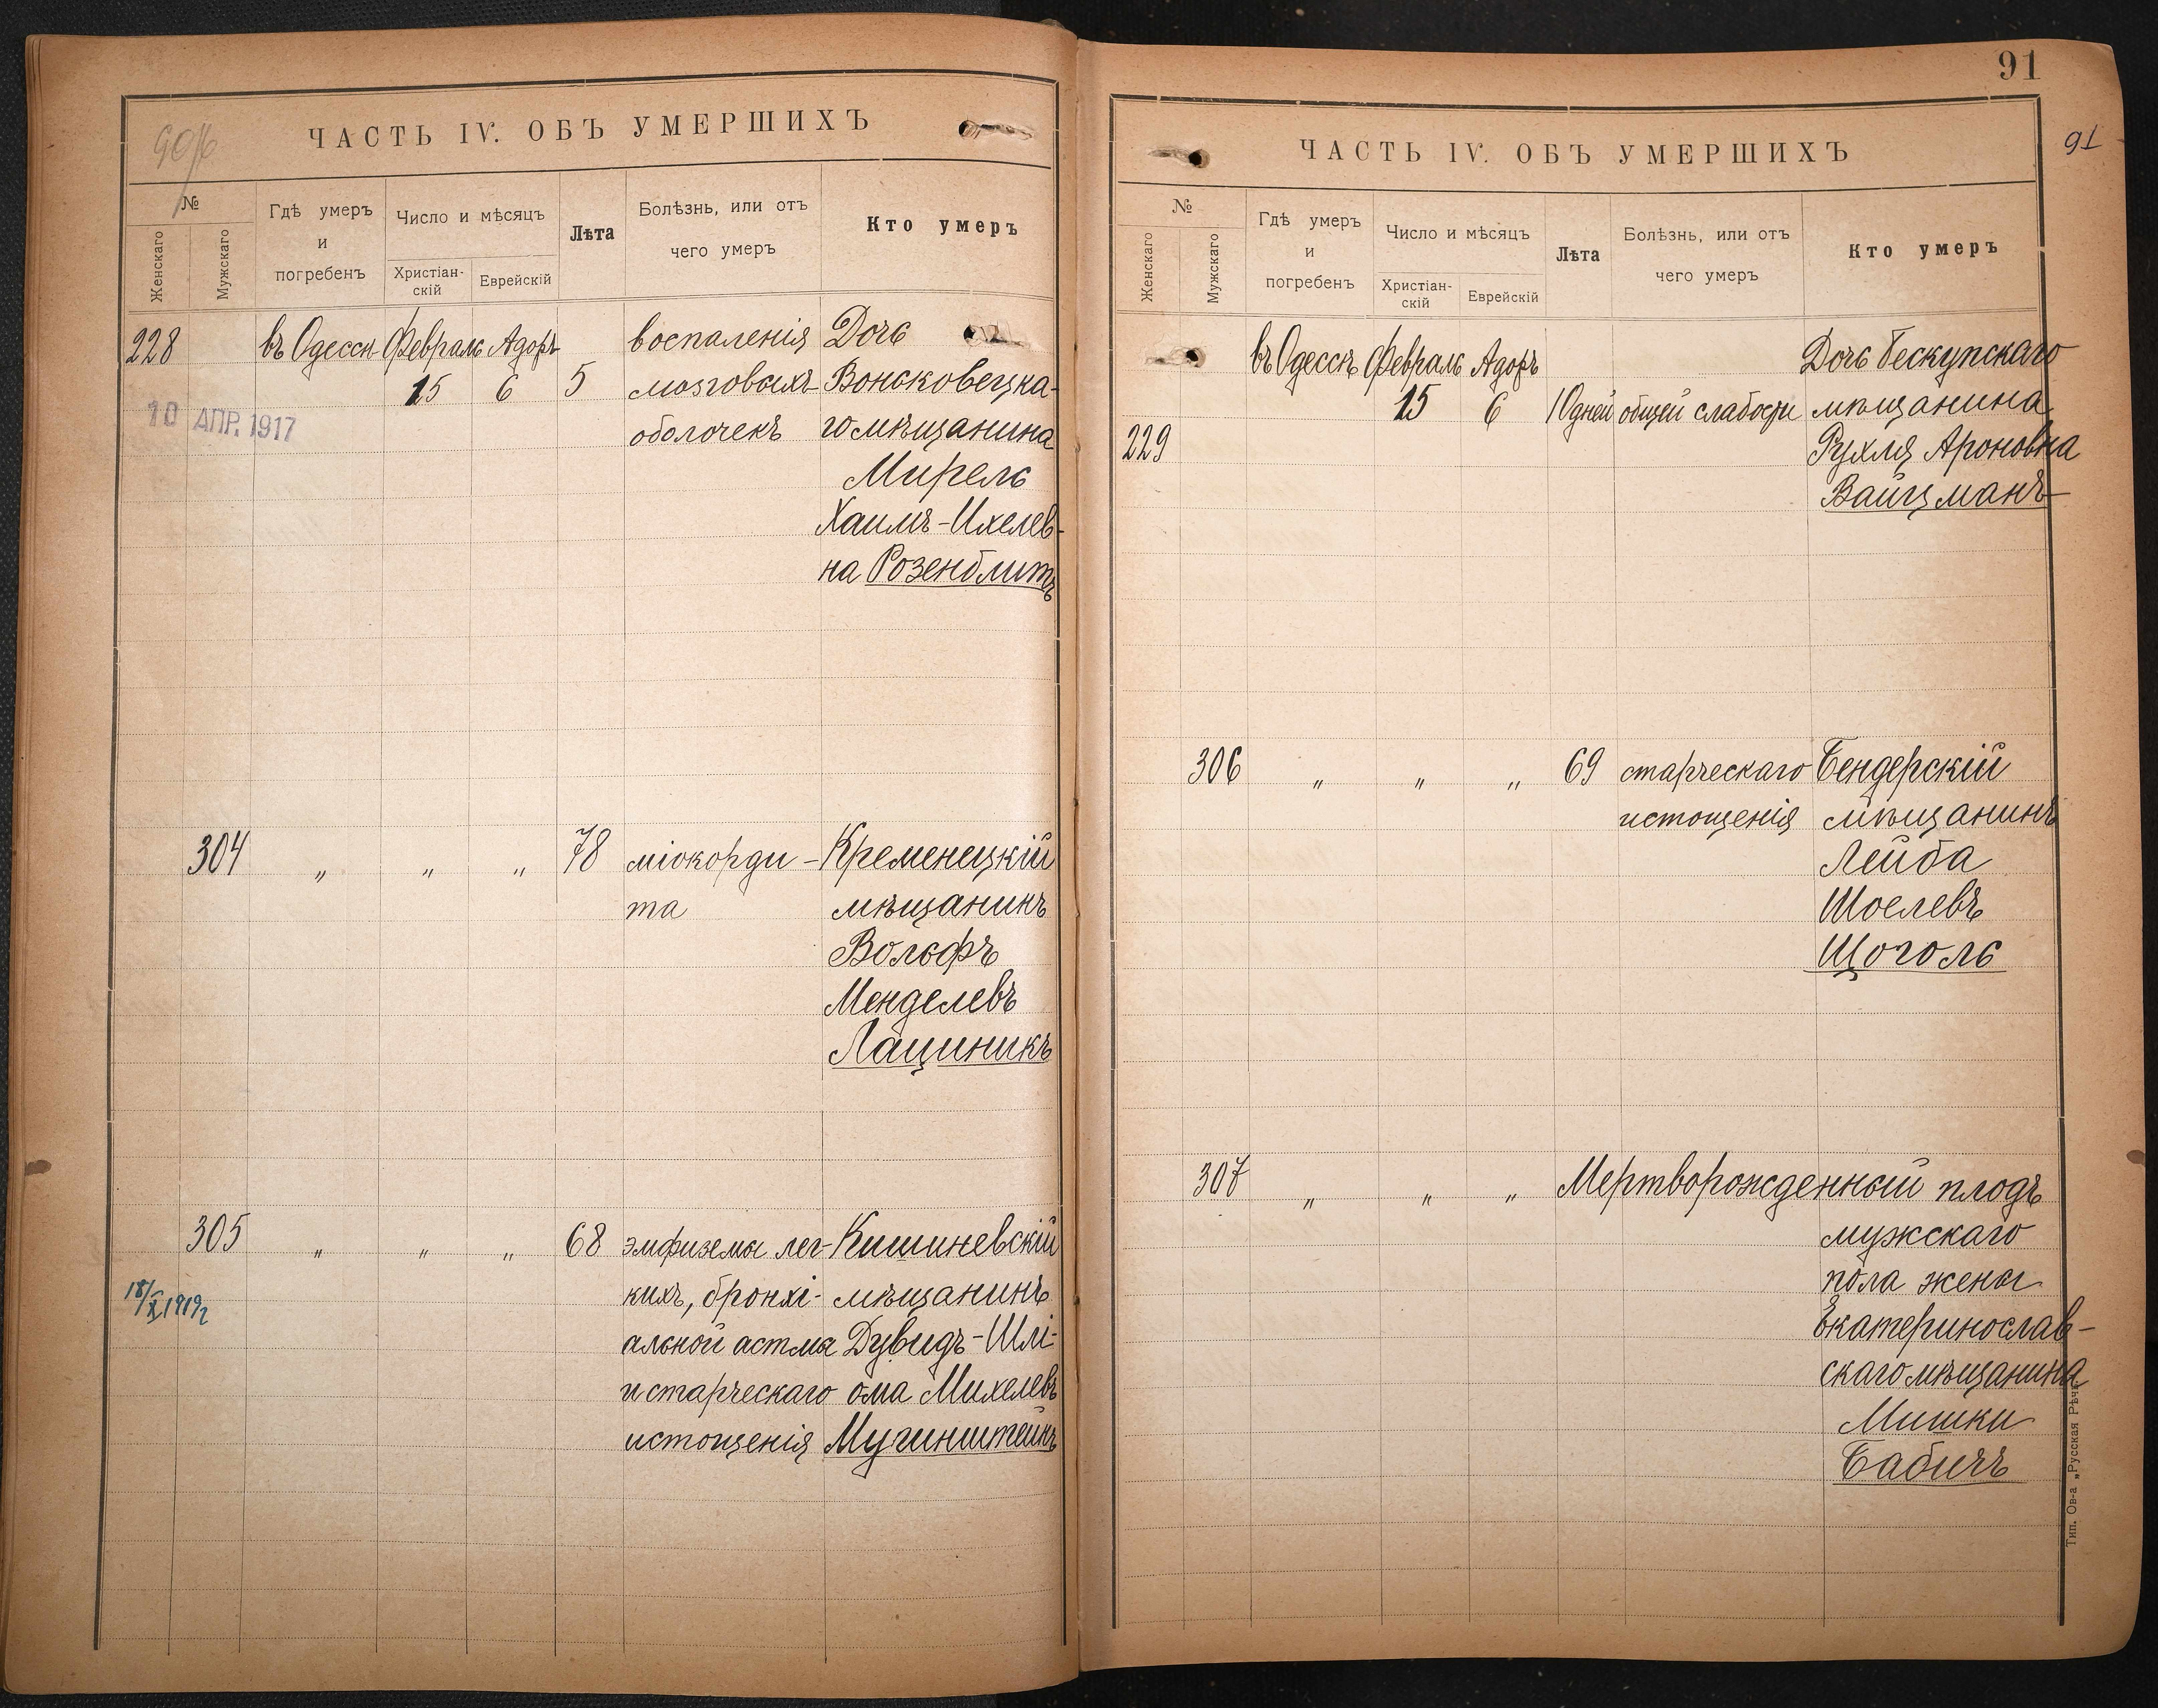 90/б
ЧАСТЬ IV. ОБЪ УМЕРШИХЪ
№
Женскаго
Мужскаго
Гдѣ умеръ
и
погребенъ
Число и мѣсяцъ
Христіан-
скій
Еврейскій
Лѣта
Болѣзнь, или отъ
чего умеръ
Кто умеръ
228 въ Одессѣ Февраль Адоръ воспаленія Дочь
15 6 5 мозговыхъ Вонсковецка-
10 АПР. 1917
оболочекъ гомѣщанина
Мирель
Хаимъ-Ихелев-
на Розенблитъ
304 „ „ „ 78 міокорди- Кременецкій
та мѣщанинъ
Вольфъ
Менделевъ
Лациникъ
305 „ „ „ 68 эмфиземы лег- Кишиневскій
18/X 1919г
кихъ, бронхі- мѣщанинъ
альной астмы Дувидъ-Шлі-
и старческаго ома Михелевъ
истощенія Мучинштейнъ
91
91
ЧАСТЬ IV. ОБЪ УМЕРШИХЪ
№
Женскаго
Мужскаго
Гдѣ умеръ
и
погребенъ
Число и мѣсяцъ
Христіан-
скій
Еврейскій
Лѣта
Болѣзнь, или отъ
чего умеръ
Кто умеръ
въ Одессѣ Февраль Адоръ Дочь Бескупскаго
15 6 10дней общей слабости мѣщанина
229 Рухля Ароновна
Вайцманъ
306 „ „ „ 69 старческаго Бендерскій
истощенія мѣщанинъ
Лейба
Шоелевъ
Щоголь
307 „ „ „ Мертворожденный плодъ
мужскаго
пола жены
Екатеринослав-
скаго мѣщанина
Мишки
Бабичъ
Тип. Ов-а „Русская Рѣчь"